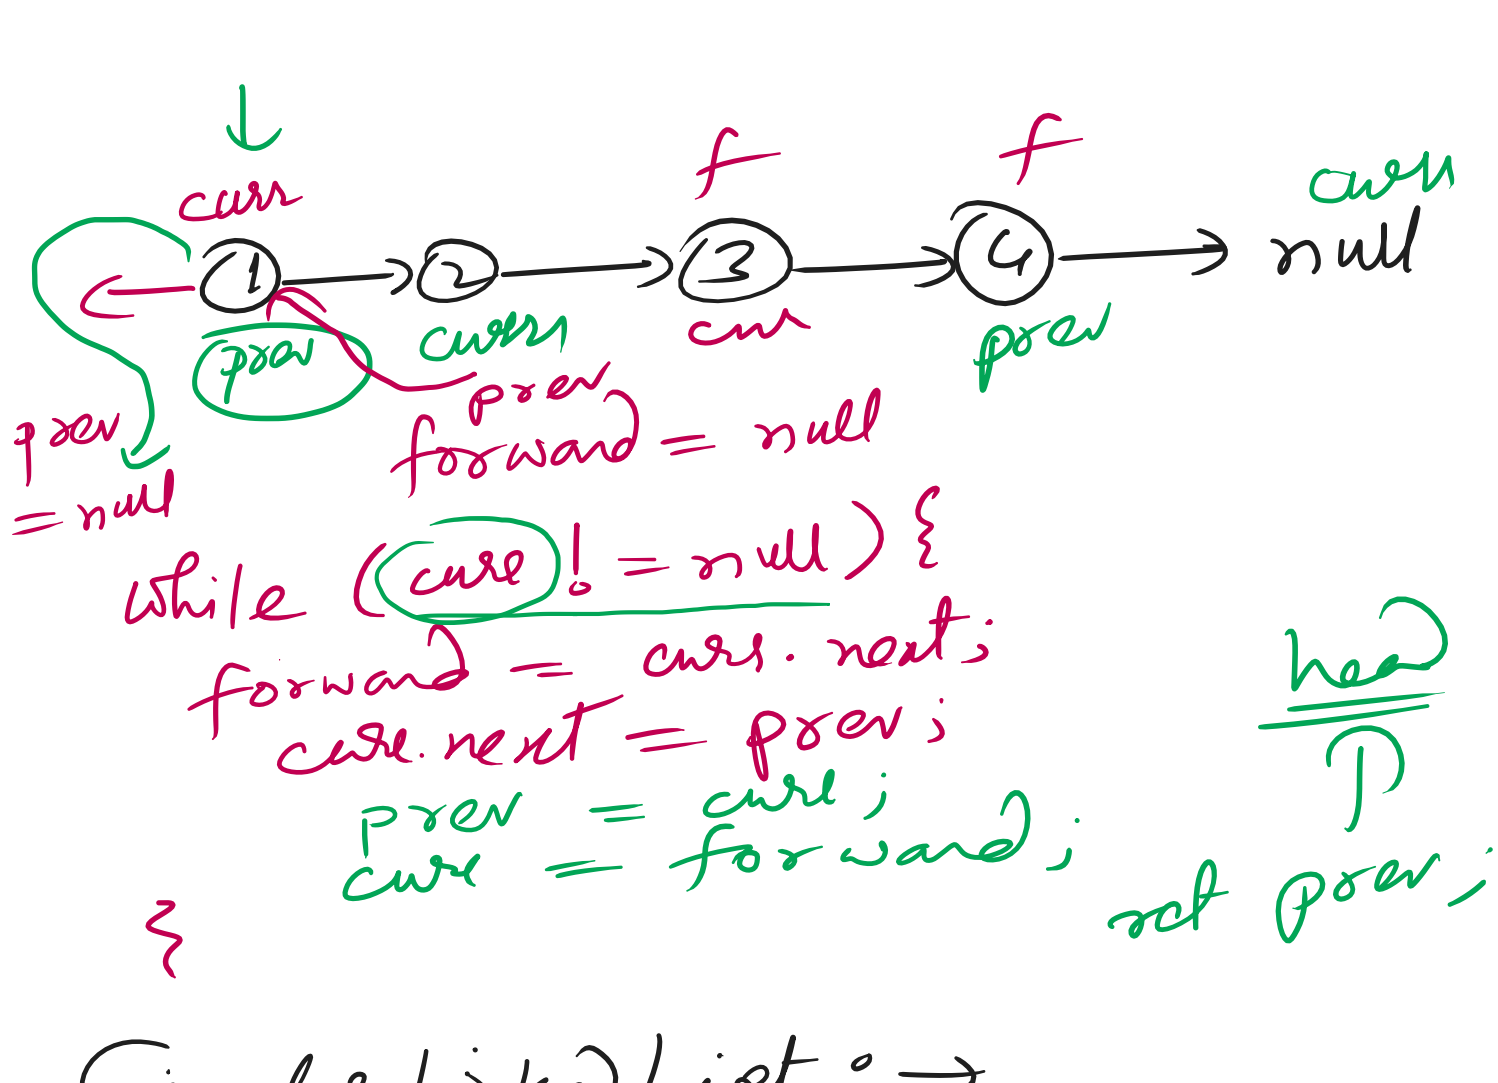 f f
curr curr
1 2 3 4 null
prev curr cur prev
prev prev
= null forward = null
while (curr != null) {
forward = curr.next;
curr.next = prev;
head
prev = curr;
curr = forward;
ret prev;
}